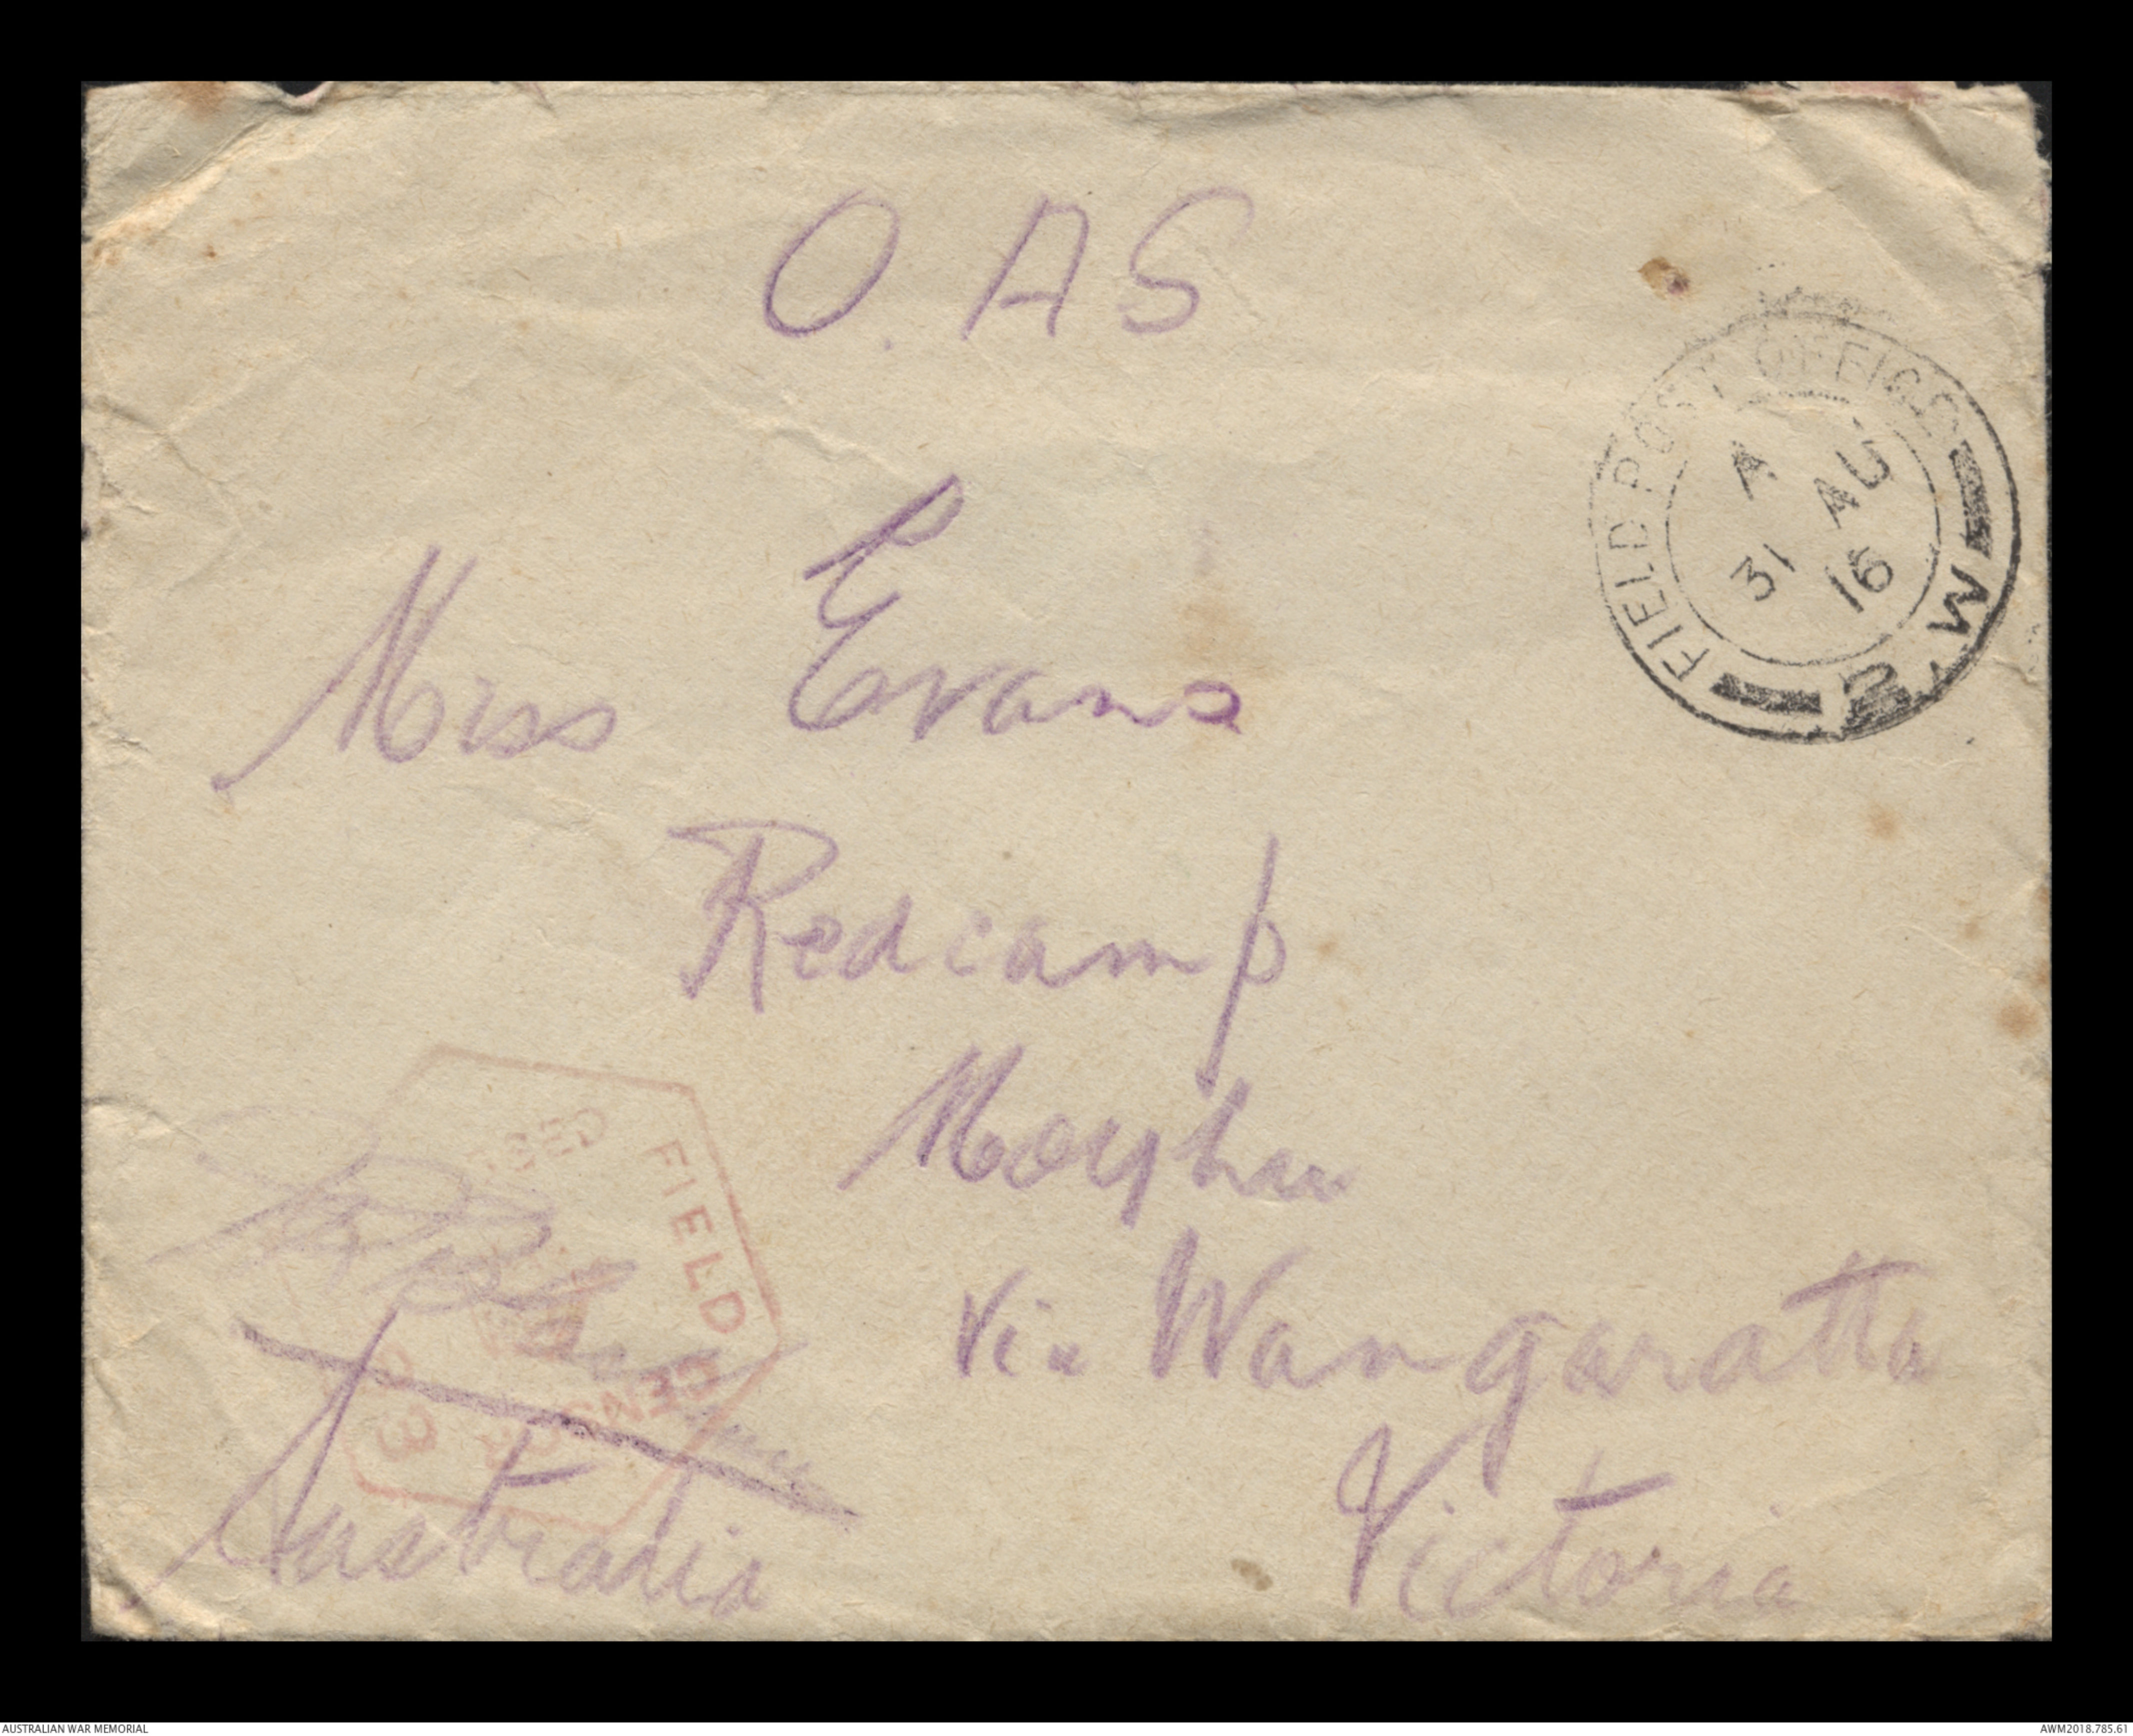 O. A S
FIELD POST OFFICE
A
31 AU
16
Miss Evans
Redcamp
Moyhu
Via Wangaratta
Victoria
FIELD
CENSOR
Australia
AUSTRALIAN WAR MEMORIAL
AWM2018.785.61